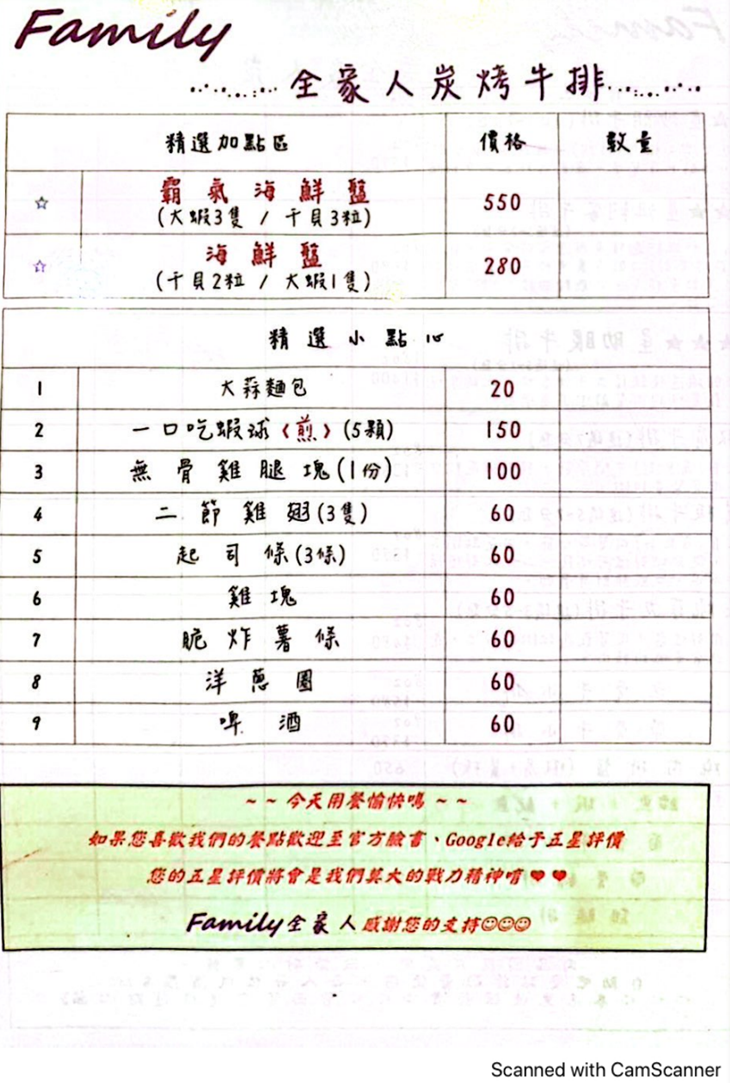 Family
全家人炭烤牛排
精選加點區 價格 數量
☆ 霸氣海鮮盤 550
(大蝦3隻 / 干貝3粒)
☆ 海鮮盤 280
(干貝2粒 / 大蝦1隻)
精選小點心
1 大蒜麵包 20
2 一口吃蝦球《煎》(5顆) 150
3 無骨雞腿塊(1份) 100
4 二節雞翅(3隻) 60
5 起司條(3條) 60
6 雞塊 60
7 脆炸薯條 60
8 洋蔥圈 60
9 啤酒 60
~ ~ 今天用餐愉快嗎 ~ ~
如果您喜歡我們的餐點歡迎至官方臉書、Google給予五星評價
您的五星評價將會是我們莫大的戰力精神唷❤❤
Family全家人感謝您的支持☺☺☺
Scanned with CamScanner